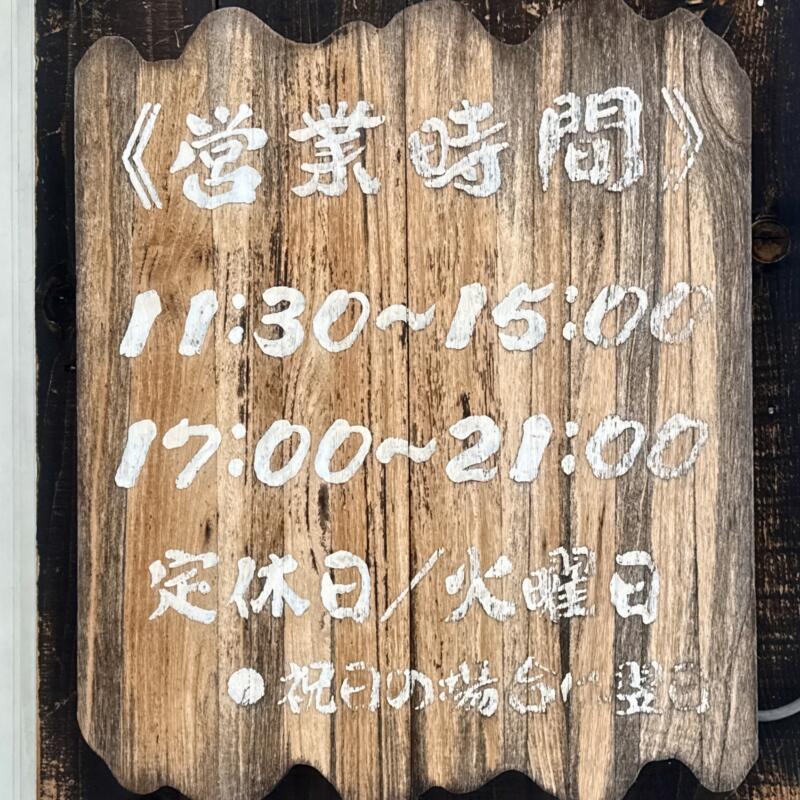 《営業時間》
11:30~15:00
17:00~21:00
定休日/火曜日
●祝日の場合は翌日